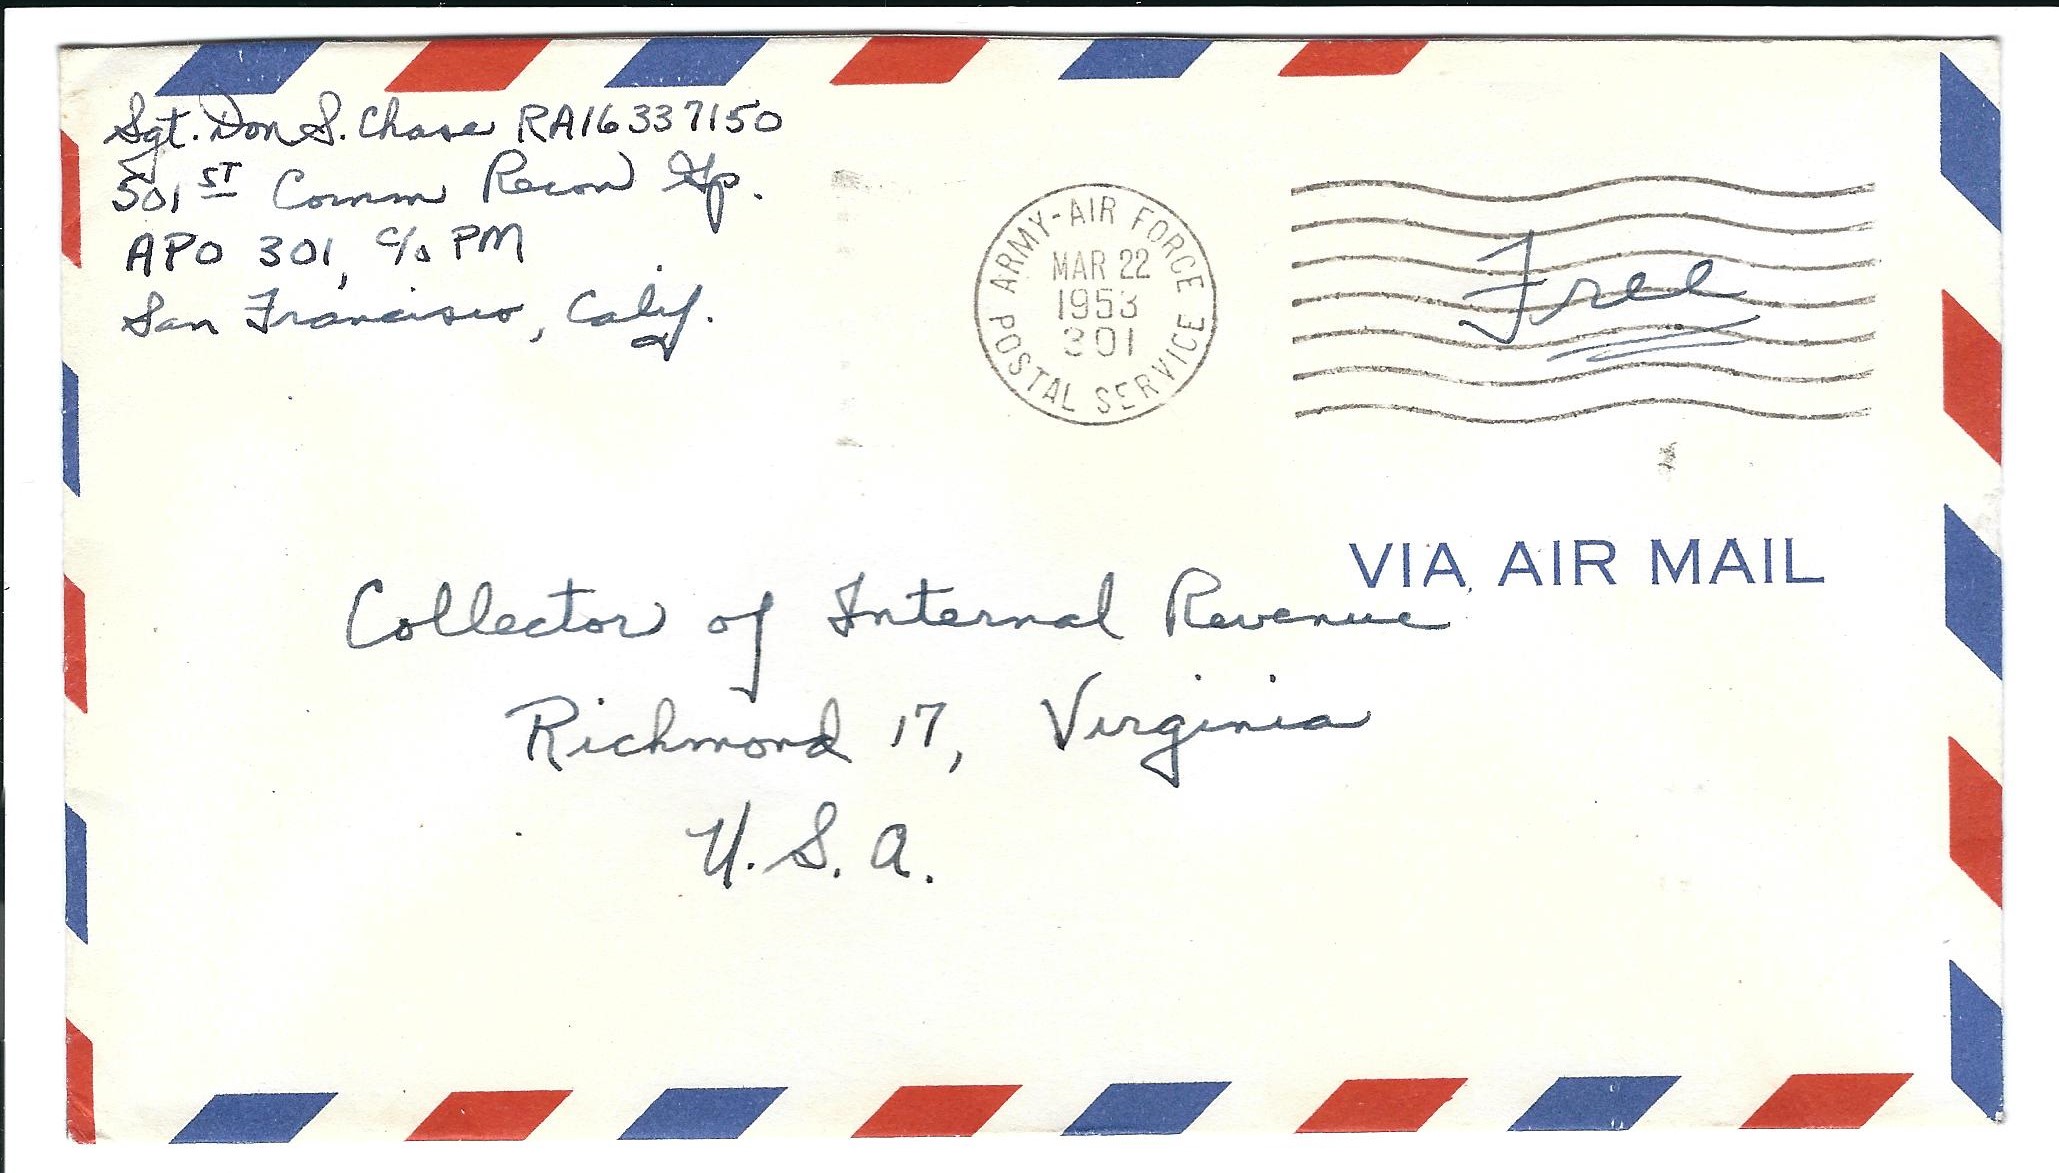 Sgt. Don S. Chase RA16337150
501 ST Comm Recon Gp.
APO 301, c/o PM
San Francisco, Calif.
ARMY-AIR FORCE
MAR 22
1953
301
POSTAL SERVICE
Free
VIA AIR MAIL
Collector of Internal Revenue
Richmond 17, Virginia
U.S.A.